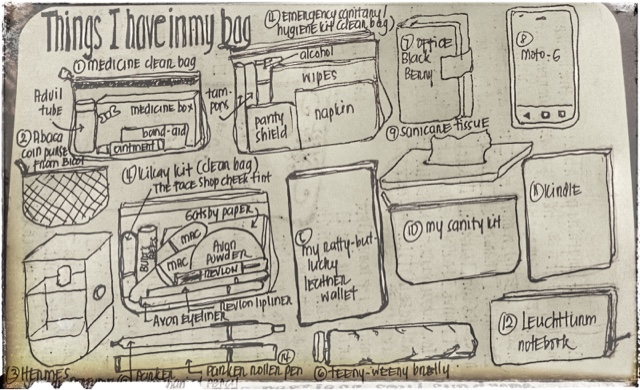 Things I have in my bag
① medicine clear bag
Advil
tube
medicine box
band-aid
ointment
② Abaca
coin purse
from Bicol
⑪ emergency sanitary/
hygiene kit (clear bag)
alcohol
wipes
tam-
pons
panty
shield
napkin
⑦ office
Black
Berry
⑧
Moto-G
⑨ sanicare tissue
④ kikay kit (clean bag)
The Face Shop cheek tint
Gatsby paper
Burt's
Bees
MAC
MAC
Avon
Powder
REVLON
Revlon lipliner
Avon eyeliner
my ratty-but-
lucky
leather
wallet
⑩ my sanity kit
kindle
⑫ Leuchtturm
notebook
③ Hermes
Parker
Parker roller pen
⑭
⑥ teeny-weeny brolly